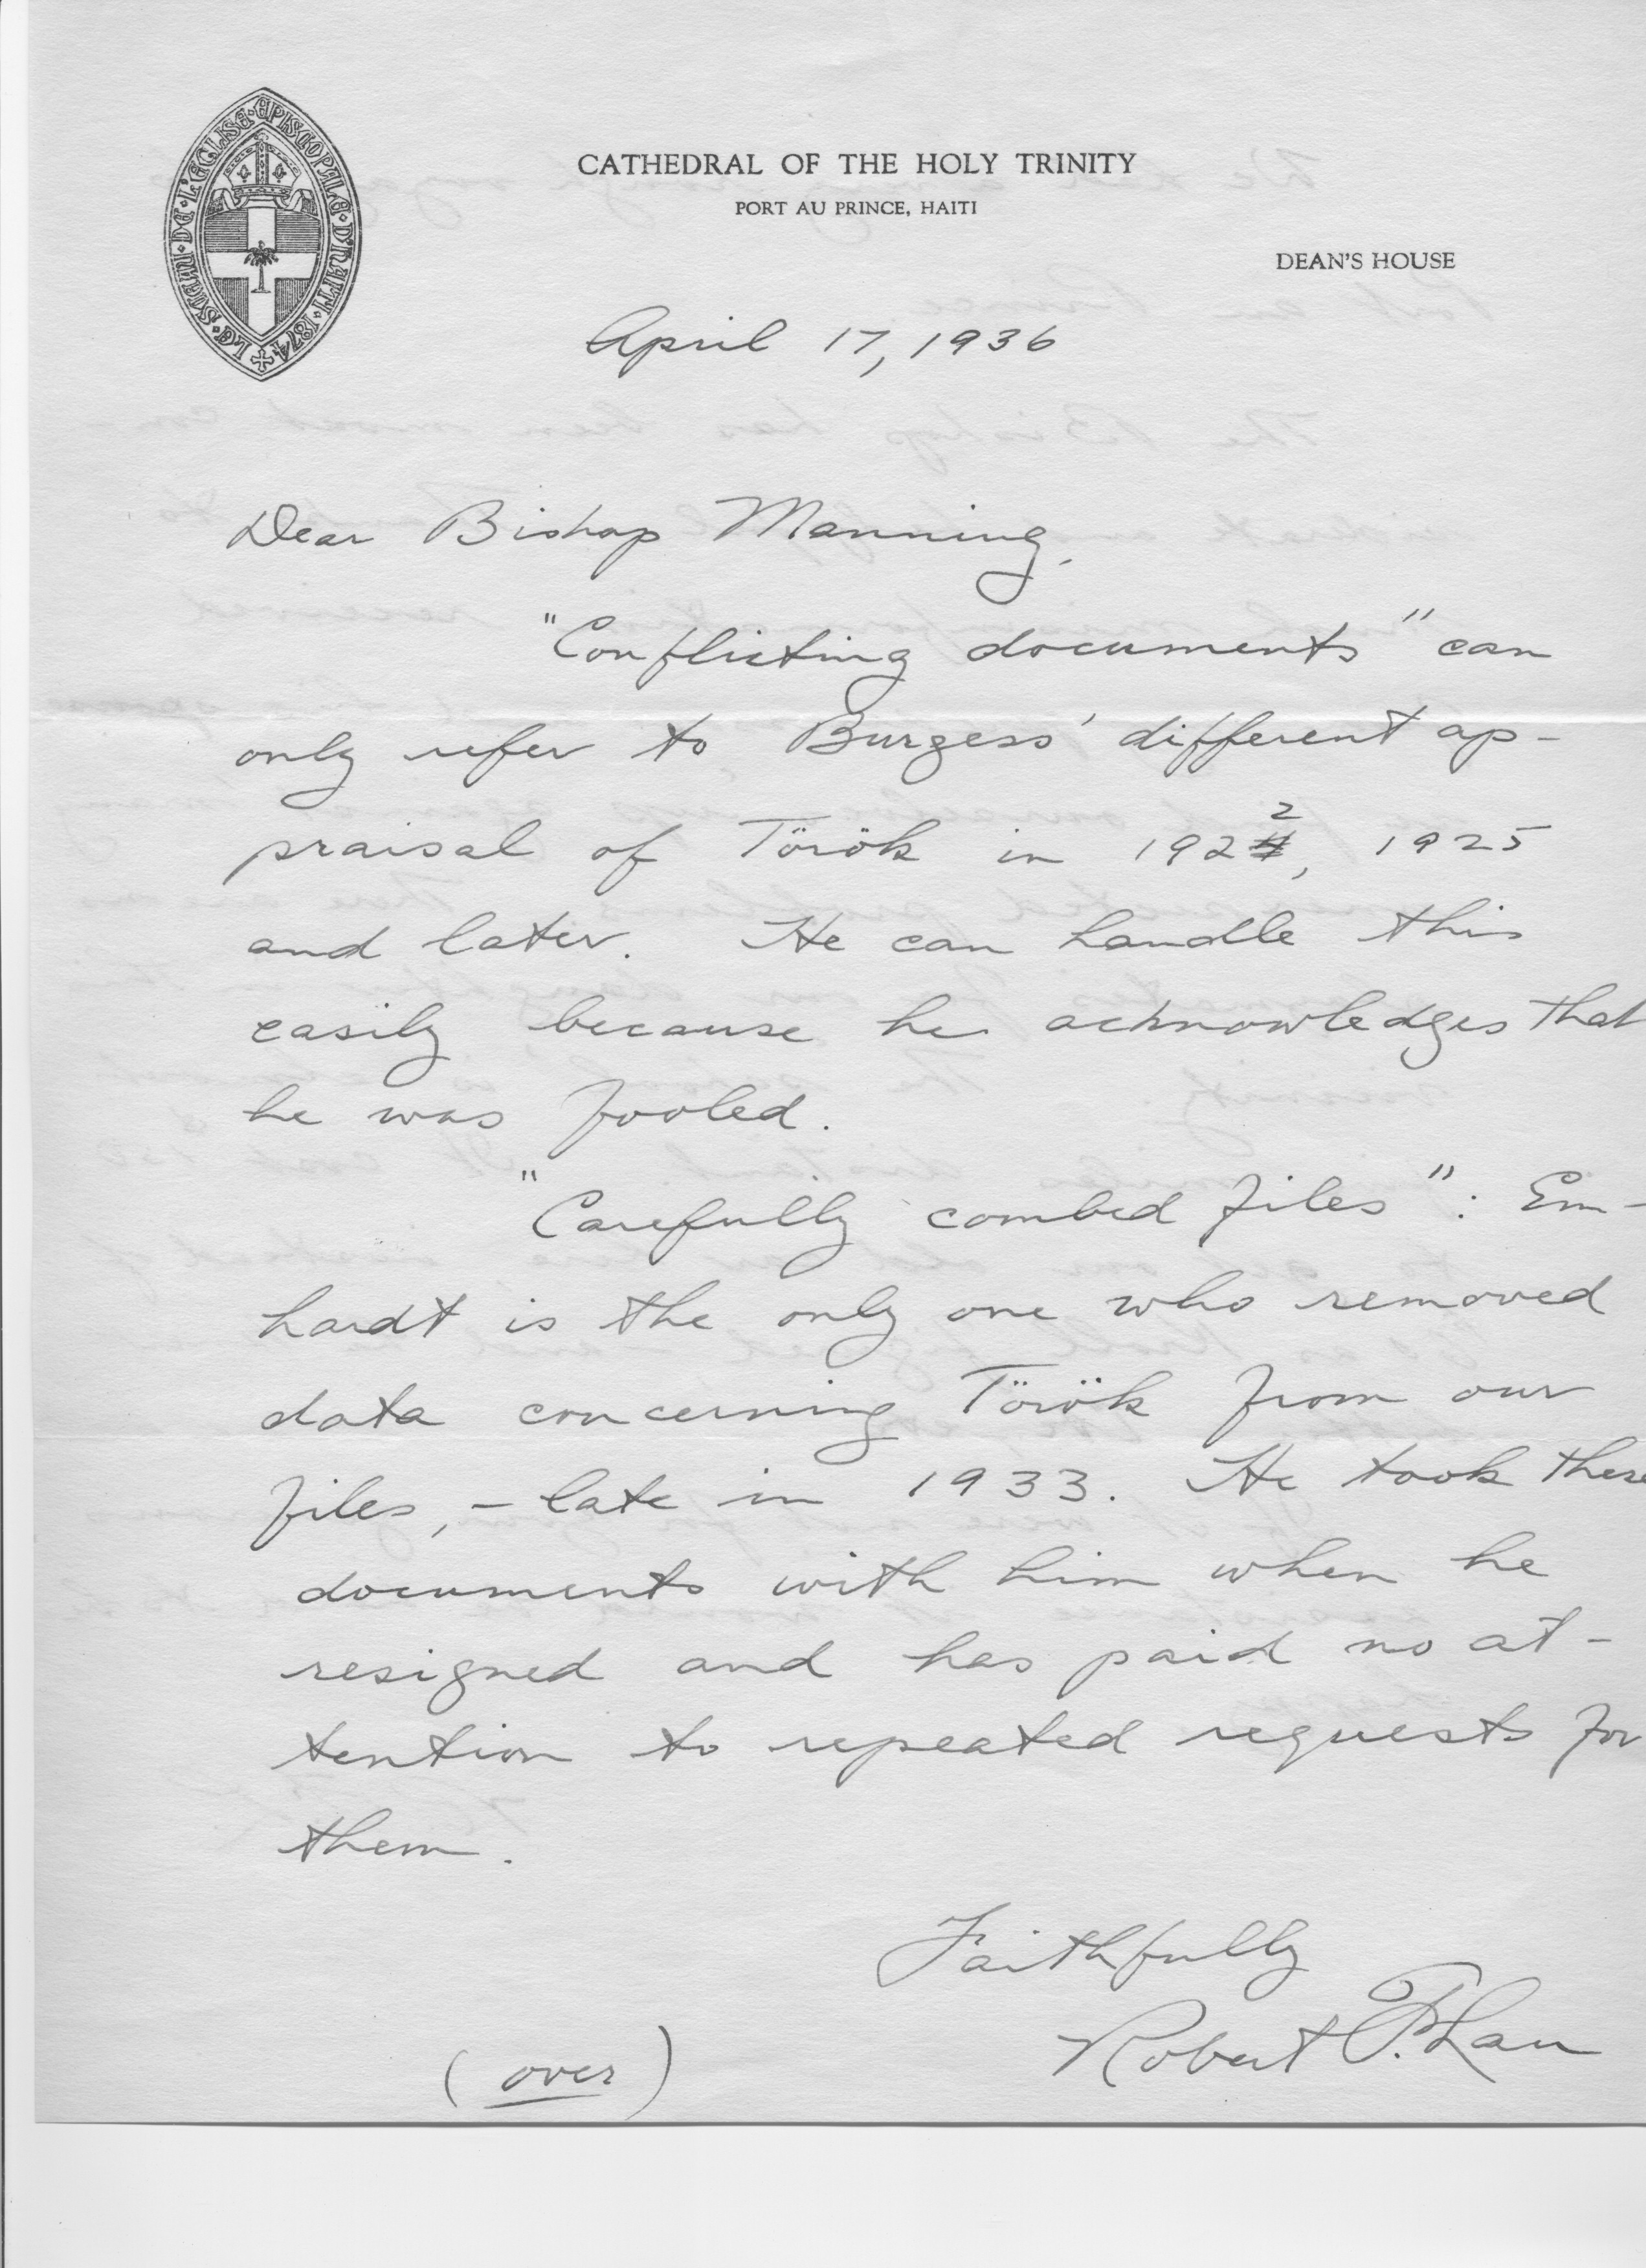 LE·SIGNU·DE·L'EGLISE·EPISCOPALE·D'HAITI·1874
CATHEDRAL OF THE HOLY TRINITY
PORT AU PRINCE, HAITI
DEAN'S HOUSE
April 17, 1936
Dear Bishop Manning,
"Conflicting documents" can
only refer to Burgess' different ap-
praisal of Török in 1922, 1925
and later. He can handle this
easily because he acknowledges that
he was fooled.
"Carefully combed files": Em-
hardt is the only one who removed
data concerning Török from our
files, - late in 1933. He took these
documents with him when he
resigned and has paid no at-
tention to repeated requests for
them.
Faithfully
Robert F. Lau
(over)